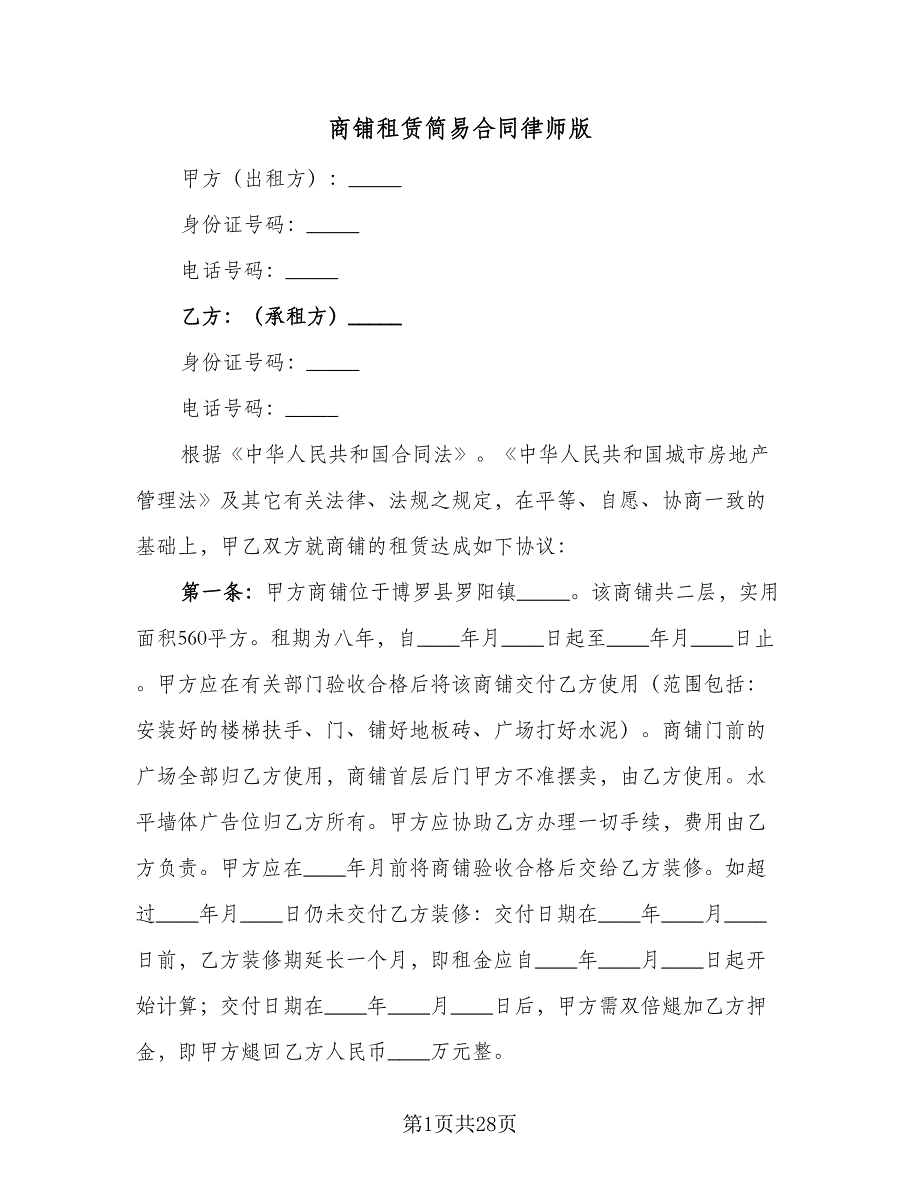 商铺租赁简易合同律师版
甲方（出租方）：_____
身份证号码：_____
电话号码：_____
乙方：（承租方）_____
身份证号码：_____
电话号码：_____
根据《中华人民共和国合同法》。《中华人民共和国城市房地产
管理法》及其它有关法律、法规之规定，在平等、自愿、协商一致的
基础上，甲乙双方就商铺的租赁达成如下协议：
第一条：甲方商铺位于博罗县罗阳镇_____。该商铺共二层，实用
面积560平方。租期为八年，自____年月____日起至____年月____日止
。甲方应在有关部门验收合格后将该商铺交付乙方使用（范围包括：
安装好的楼梯扶手、门、铺好地板砖、广场打好水泥）。商铺门前的
广场全部归乙方使用，商铺首层后门甲方不准摆卖，由乙方使用。水
平墙体广告位归乙方所有。甲方应协助乙方办理一切手续，费用由乙
方负责。甲方应在____年月前将商铺验收合格后交给乙方装修。如超
过____年月____日仍未交付乙方装修：交付日期在____年____月____
日前，乙方装修期延长一个月，即租金应自____年____月____日起开
始计算；交付日期在____年____月____日后，甲方需双倍煺加乙方押
金，即甲方煺回乙方人民币____万元整。
第1页共28页